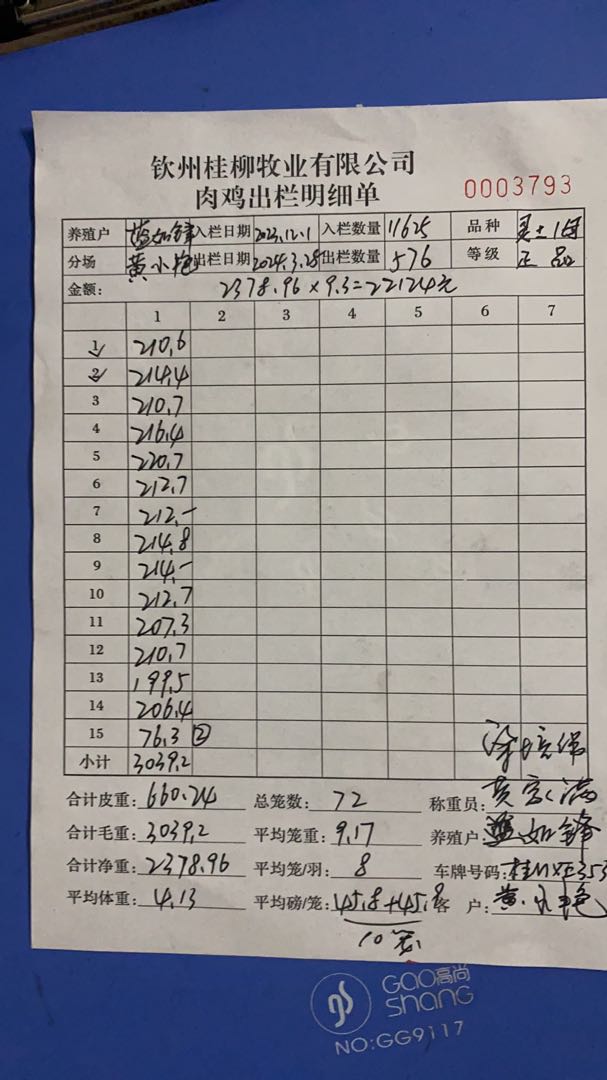 钦州桂柳牧业有限公司
肉鸡出栏明细单
0003793
养殖户 蓝如锋 入栏日期 2023.12.1 入栏数量 11625 品种
分场 黄小艳 出栏日期 2024.3.28 出栏数量 576 等级 正品
金额: 2378.96×9.3=22124元
1 2 3 4 5 6 7
1 210.6
2 214.4
3 210.7
4 216.4
5 220.7
6 212.7
7 212.-
8 214.8
9 214.-
10 212.7
11 207.3
12 210.7
13 199.5
14 206.4
15 76.3 ②
小计 3039.2
合计皮重: 660.24 总笼数: 72 称重员:
合计毛重: 3039.2 平均笼重: 9.17 养殖户: 蓝如锋
合计净重: 2378.96 平均笼/羽: 8 车牌号码: 桂MXE353
平均体重: 4.13 平均磅/笼: 45.8+45.8 客户: 黄小艳
10笼
GAO高尚
SHANG
NO:GG9117